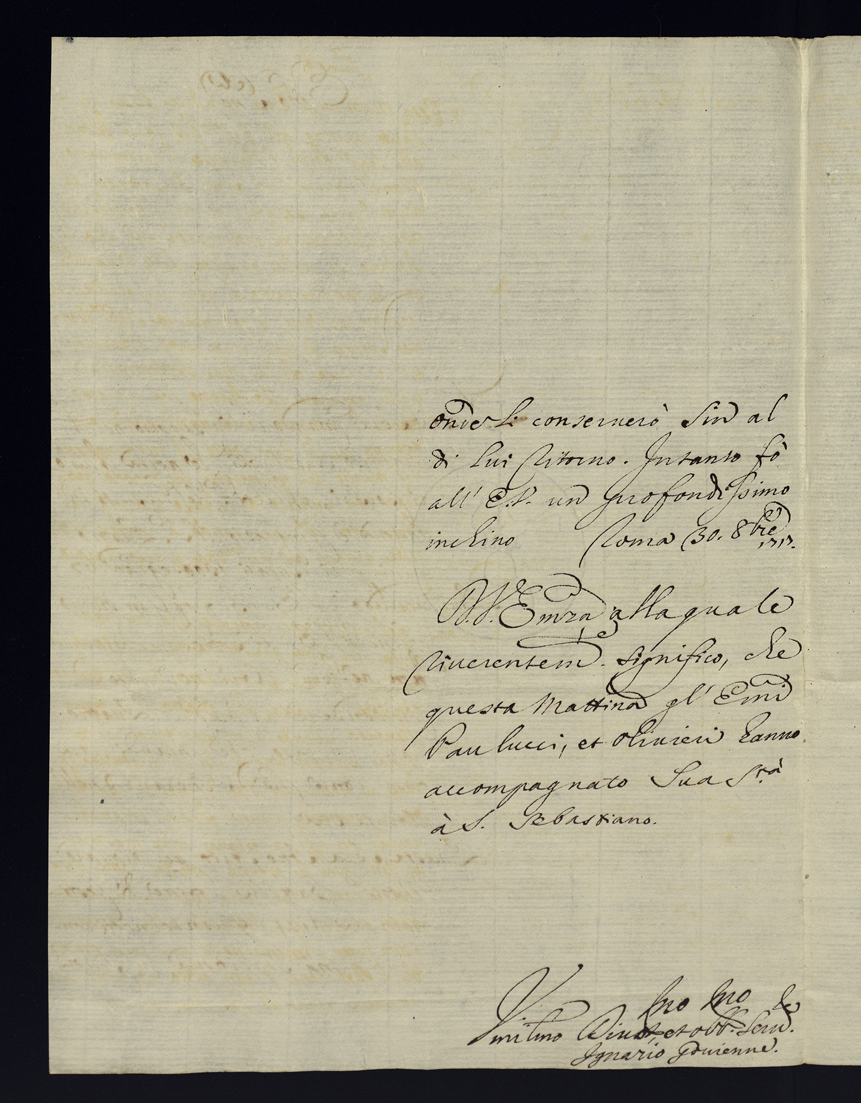 onde si conserverò sin al
di lui ritorno. Intanto fò
all' E.V. un profondissimo
inchino Roma 30. 8bre 1717.
D.V. Emza alla quale
riverentem.e significo, che
questa Mattina gl' Emi
Paulucci, et Olivieri hanno
accompagnato Sua S.tà
à S. Sebastiano.
mo mo
Umilmo Divot. et obb. Serv.
Ignazio